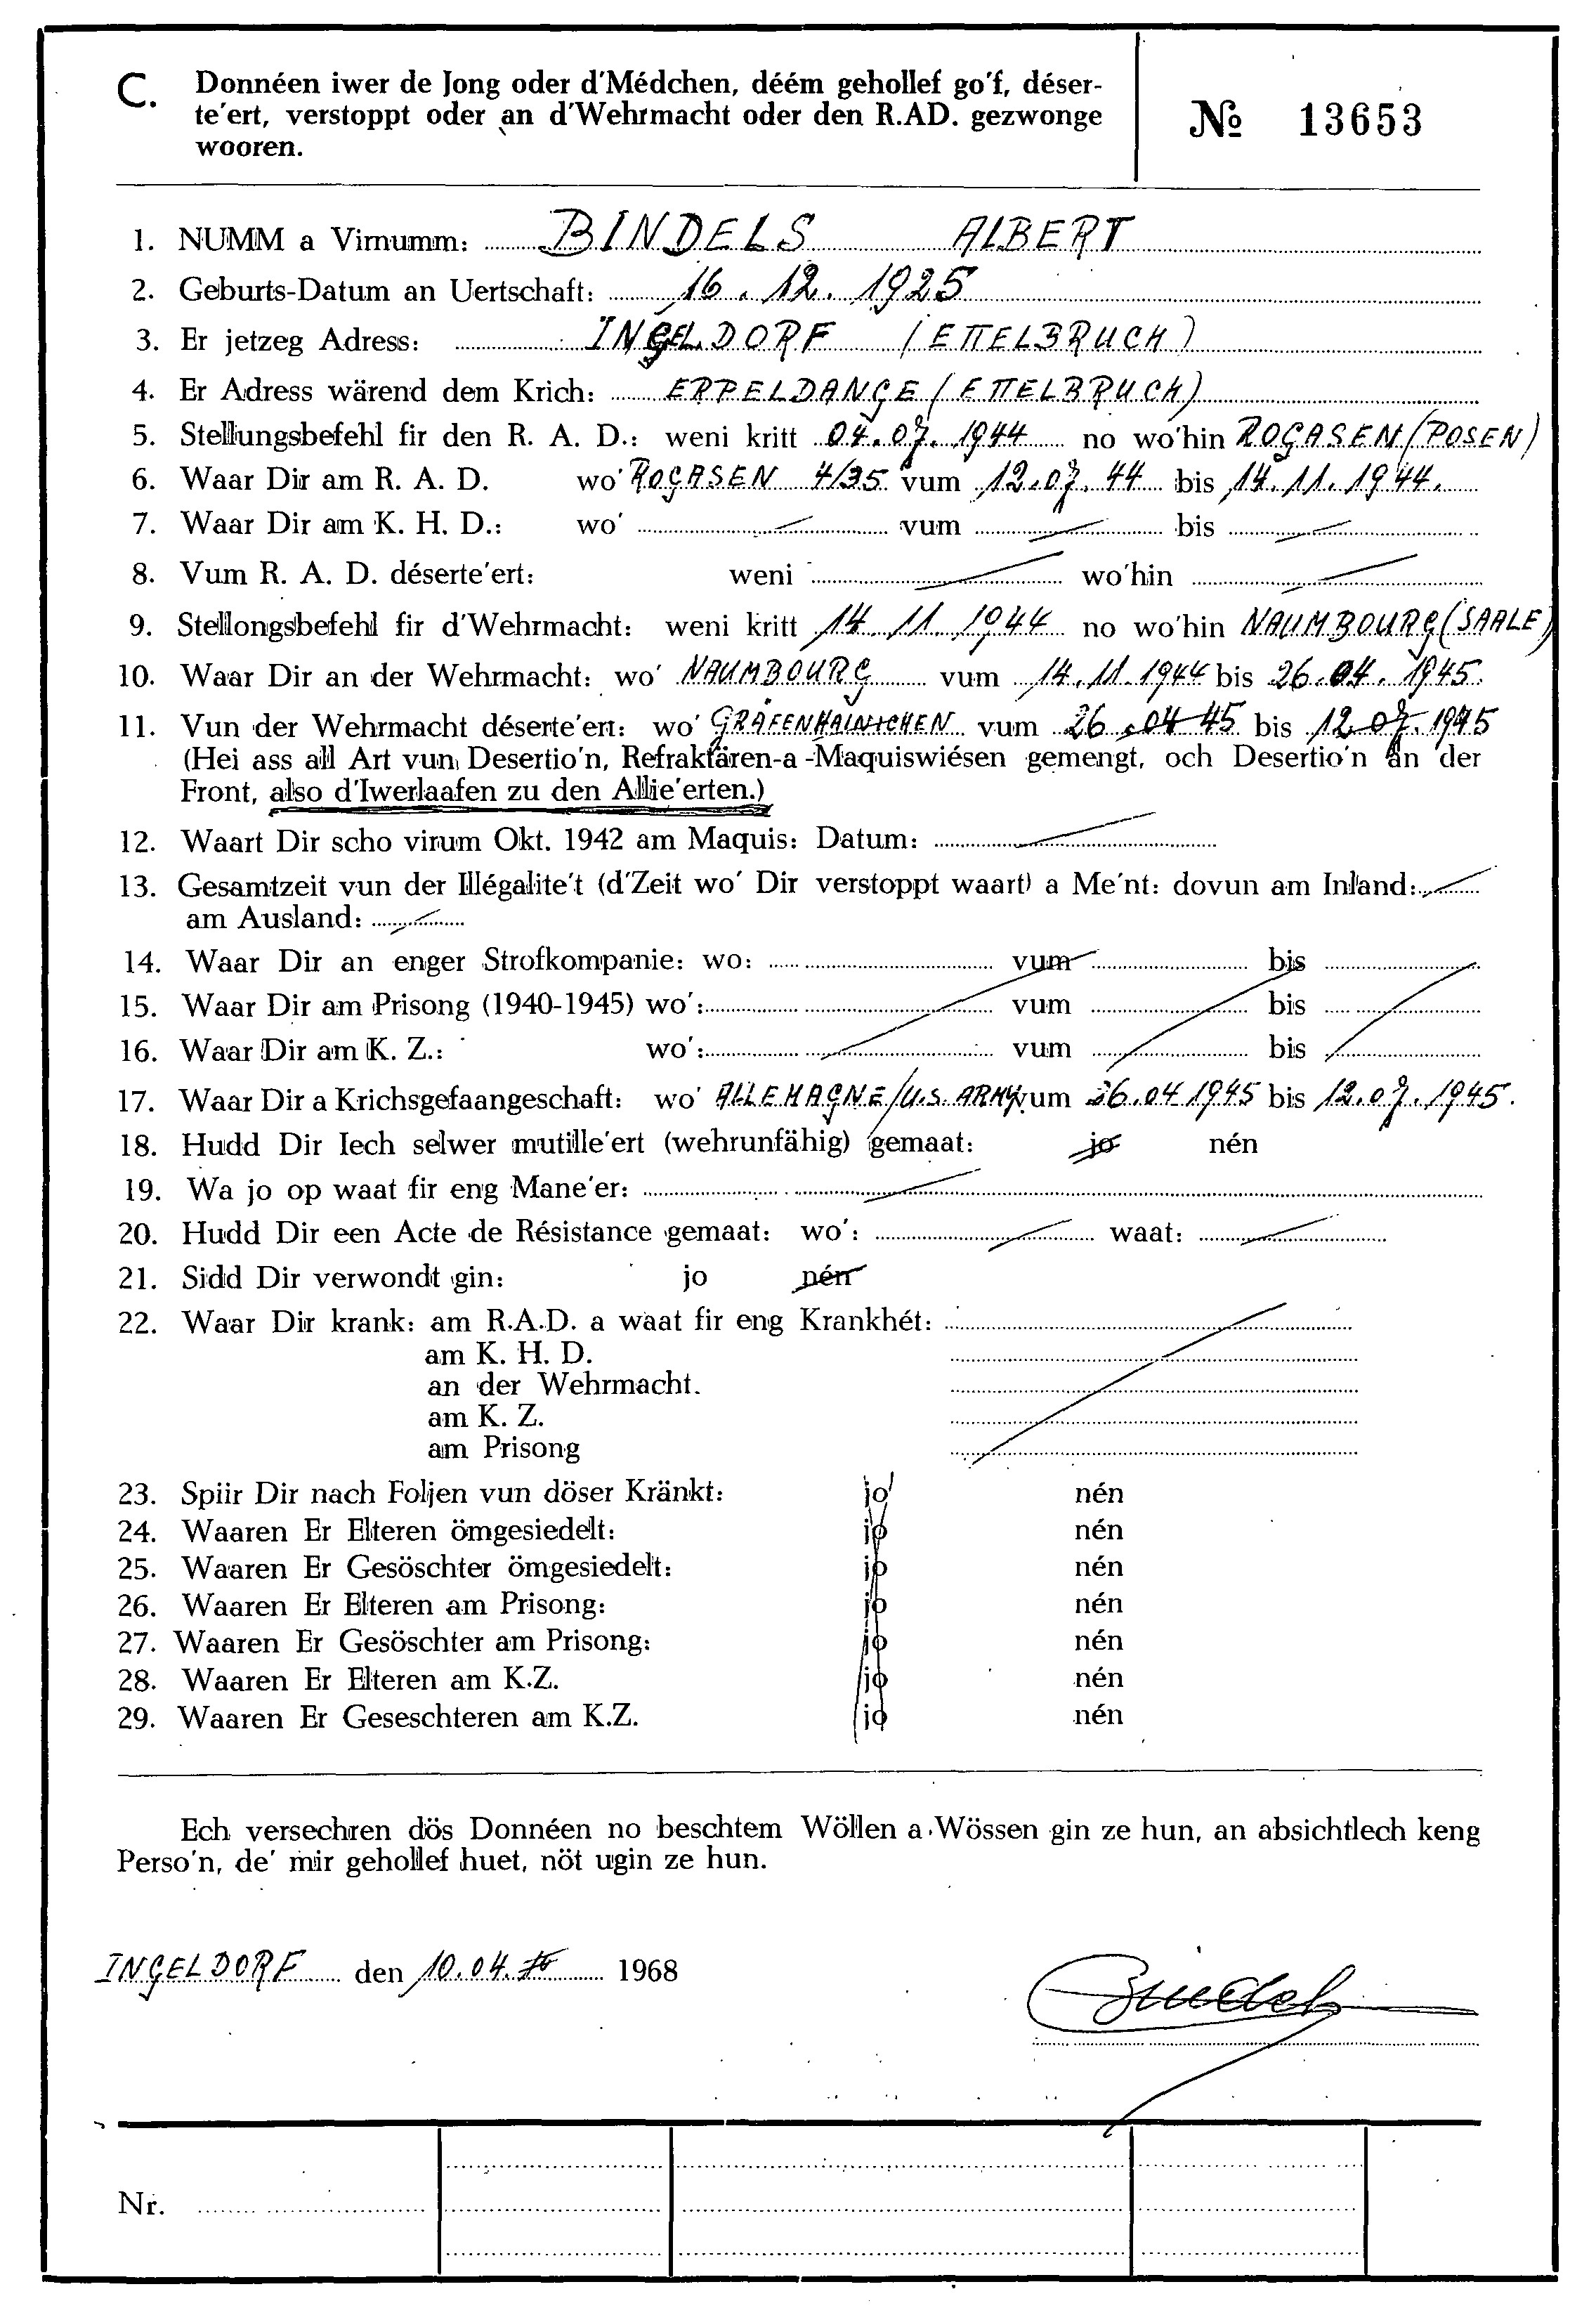 C. Donnéen iwer de Jong oder d'Médchen, déém gehollef go'f, déser-
te'ert, verstoppt oder an d'Wehrmacht oder den R.AD. gezwonge
wooren.
№ 13653
1. NUMM a Virnumm: BINDELS ALBERT
2. Geburts-Datum an Uertschaft: 16.12.1925
3. Er jetzeg Adress: INGELDORF (ETTELBRUCH)
4. Er Adress wärend dem Krich: ERPELDANGE (ETTELBRUCH)
5. Stellungsbefehl fir den R. A. D.: weni kritt 04.07.1944 no wo'hin ROGASEN (POSEN)
6. Waar Dir am R. A. D. wo' ROGASEN 4/35 vum 12.07.44 bis 14.11.1944.
7. Waar Dir am K. H. D.: wo' vum bis
8. Vum R. A. D. déserte'ert: weni wo'hin
9. Stellongsbefehl fir d'Wehrmacht: weni kritt 14.11.1944 no wo'hin NAUMBOURG (SAALE)
10. Waar Dir an der Wehrmacht: wo' NAUMBOURG vum 14.11.1944 bis 26.04.1945.
11. Vun der Wehrmacht déserte'ert: wo' GRÄFENHAINICHEN vum 26.04 45 bis 12.07.1945
(Hei ass all Art vun Desertio'n, Refraktären-a -Maquiswiésen gemengt, och Desertio'n an der
Front, also d'Iwerlaafen zu den Allie'erten.)
12. Waart Dir scho virum Okt. 1942 am Maquis: Datum:
13. Gesamtzeit vun der Illégalite't (d'Zeit wo' Dir verstoppt waart) a Me'nt: dovun am Inland:
am Ausland:
14. Waar Dir an enger Strofkompanie: wo: vum bis
15. Waar Dir am Prisong (1940-1945) wo': vum bis
16. Waar Dir am K. Z.: wo': vum bis
17. Waar Dir a Krichsgefaangeschaft: wo' ALLEMAGNE/U.S. ARMY vum 26.04 1945 bis 12.07.1945.
18. Hudd Dir Iech selwer mutille'ert (wehrunfähig) gemaat: jo nén
19. Wa jo op waat fir eng Mane'er:
20. Hudd Dir een Acte de Résistance gemaat: wo': waat:
21. Sidd Dir verwondt gin: jo nén
22. Waar Dir krank: am R.A.D. a waat fir eng Krankhét:
am K. H. D.
an der Wehrmacht.
am K. Z.
am Prisong
23. Spiir Dir nach Foljen vun döser Kränkt: jo nén
24. Waaren Er Elteren ömgesiedelt: jo nén
25. Waaren Er Gesöschter ömgesiedelt: jo nén
26. Waaren Er Elteren am Prisong: jo nén
27. Waaren Er Gesöschter am Prisong: jo nén
28. Waaren Er Elteren am K.Z. jo nén
29. Waaren Er Geseschteren am K.Z. jo nén
Ech versechren dös Donnéen no beschtem Wöllen a Wössen gin ze hun, an absichtlech keng
Perso'n, de' mir gehollef huet, nöt ugin ze hun.
INGELDORF den 10.04. 1968
Bindels
Nr.